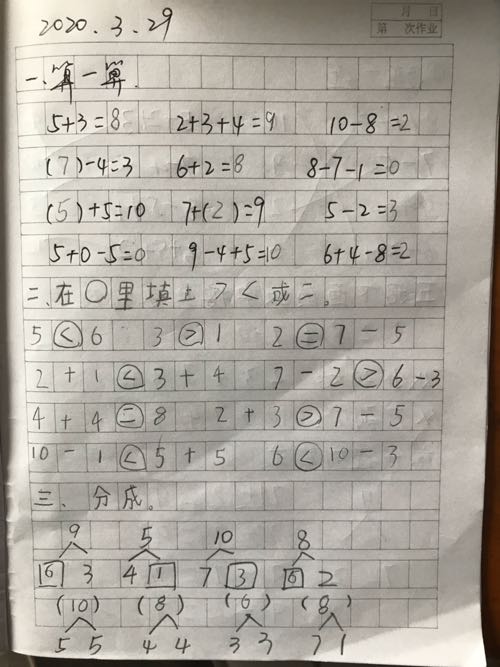 月 日
第 次作业
2020.3.29
一、算一算.
5+3=8 2+3+4=9 10-8=2
(7)-4=3 6+2=8 8-7-1=0
(5)+5=10 7+(2)=9 5-2=3
5+0-5=0 9-4+5=10 6+4-8=2
二、在○里填上><或=。
5<6 3>1 2=7-5
2+1<3+4 7-2>6-3
4+4=8 2+3>7-5
10-1<5+5 6<10-3
三、分成。
9 5 10 8
6 3 4 1 7 3 6 2
(10) (8) (6) (8)
5 5 4 4 3 3 7 1